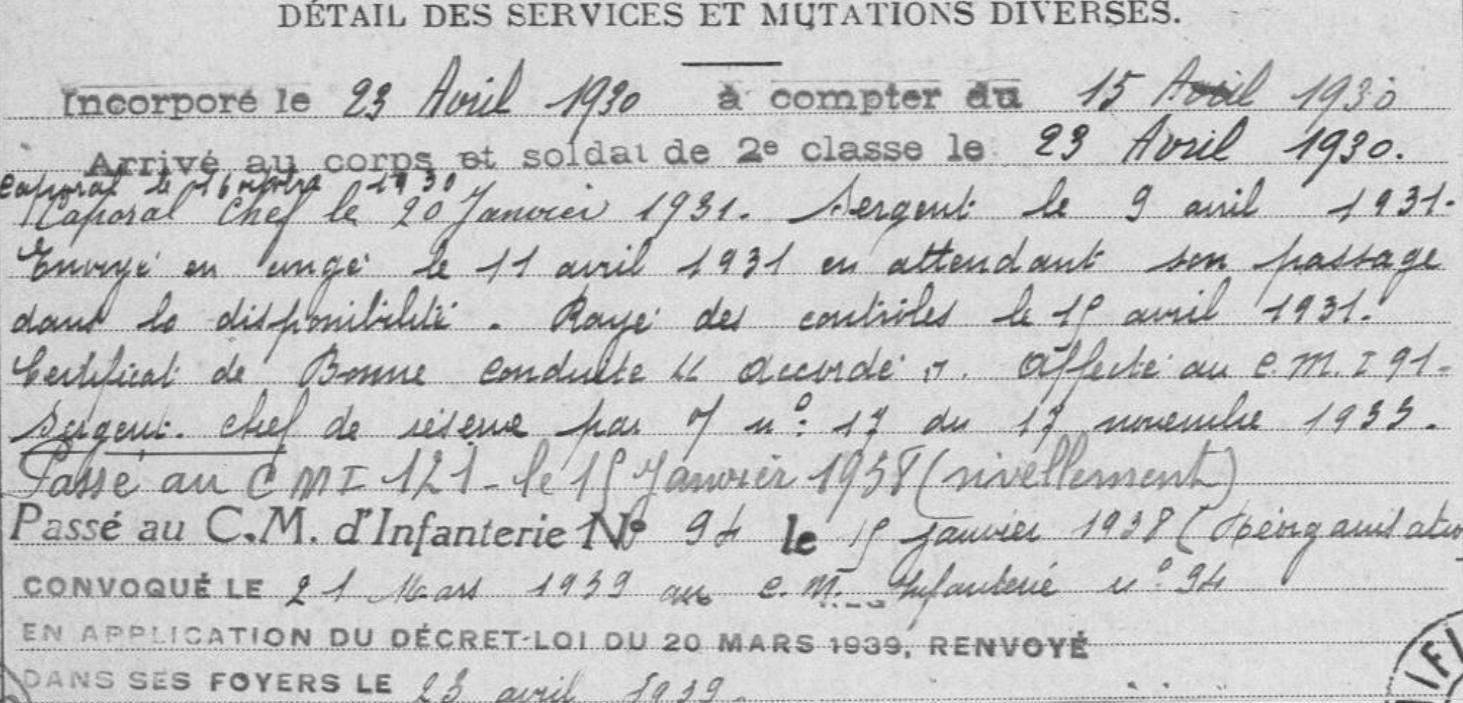 DÉTAIL DES SERVICES ET MUTATIONS DIVERSES.
Incorporé le 23 Avril 1930 à compter du 15 Avril 1930
Arrivé au corps et soldat de 2e classe le 23 Avril 1930.
Caporal le 16 octobre 1930
Caporal Chef le 20 Janvier 1931. Sergent le 9 avril 1931.
Envoyé en congé le 11 avril 1931 en attendant son passage
dans la disponibilité. Rayé des contrôles le 15 avril 1931.
Certificat de Bonne Conduite "accordé". Affecté au C.M.I 91-
Sergent-chef de réserve par n° 17 du 17 novembre 1933.
Passé au CMI 121-le 15 Janvier 1938 (nivellement)
Passé au C.M. d'Infanterie N° 94 le 15 janvier 1938 (Réorganisation
CONVOQUÉ LE 21 Mars 1939 au C.M. Infanterie n° 94
EN APPLICATION DU DÉCRET-LOI DU 20 MARS 1939, RENVOYÉ
DANS SES FOYERS LE 23 avril 1939.